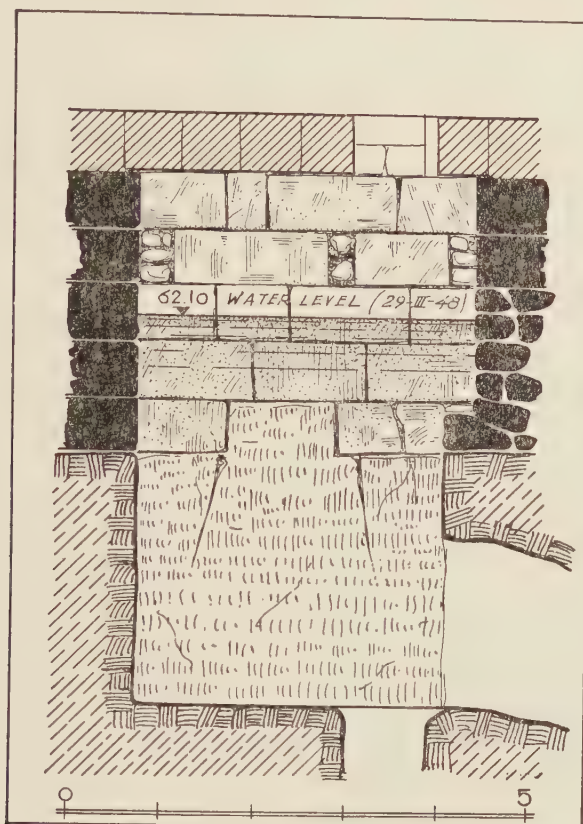 62.10 WATER LEVEL (29-III-48)
0 5